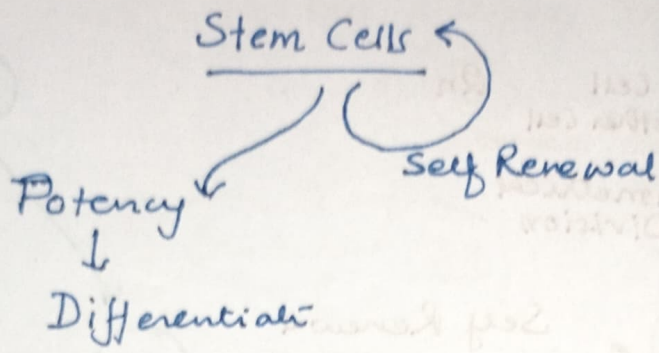 Stem Cells
Self Renewal
Potency
Differentiati